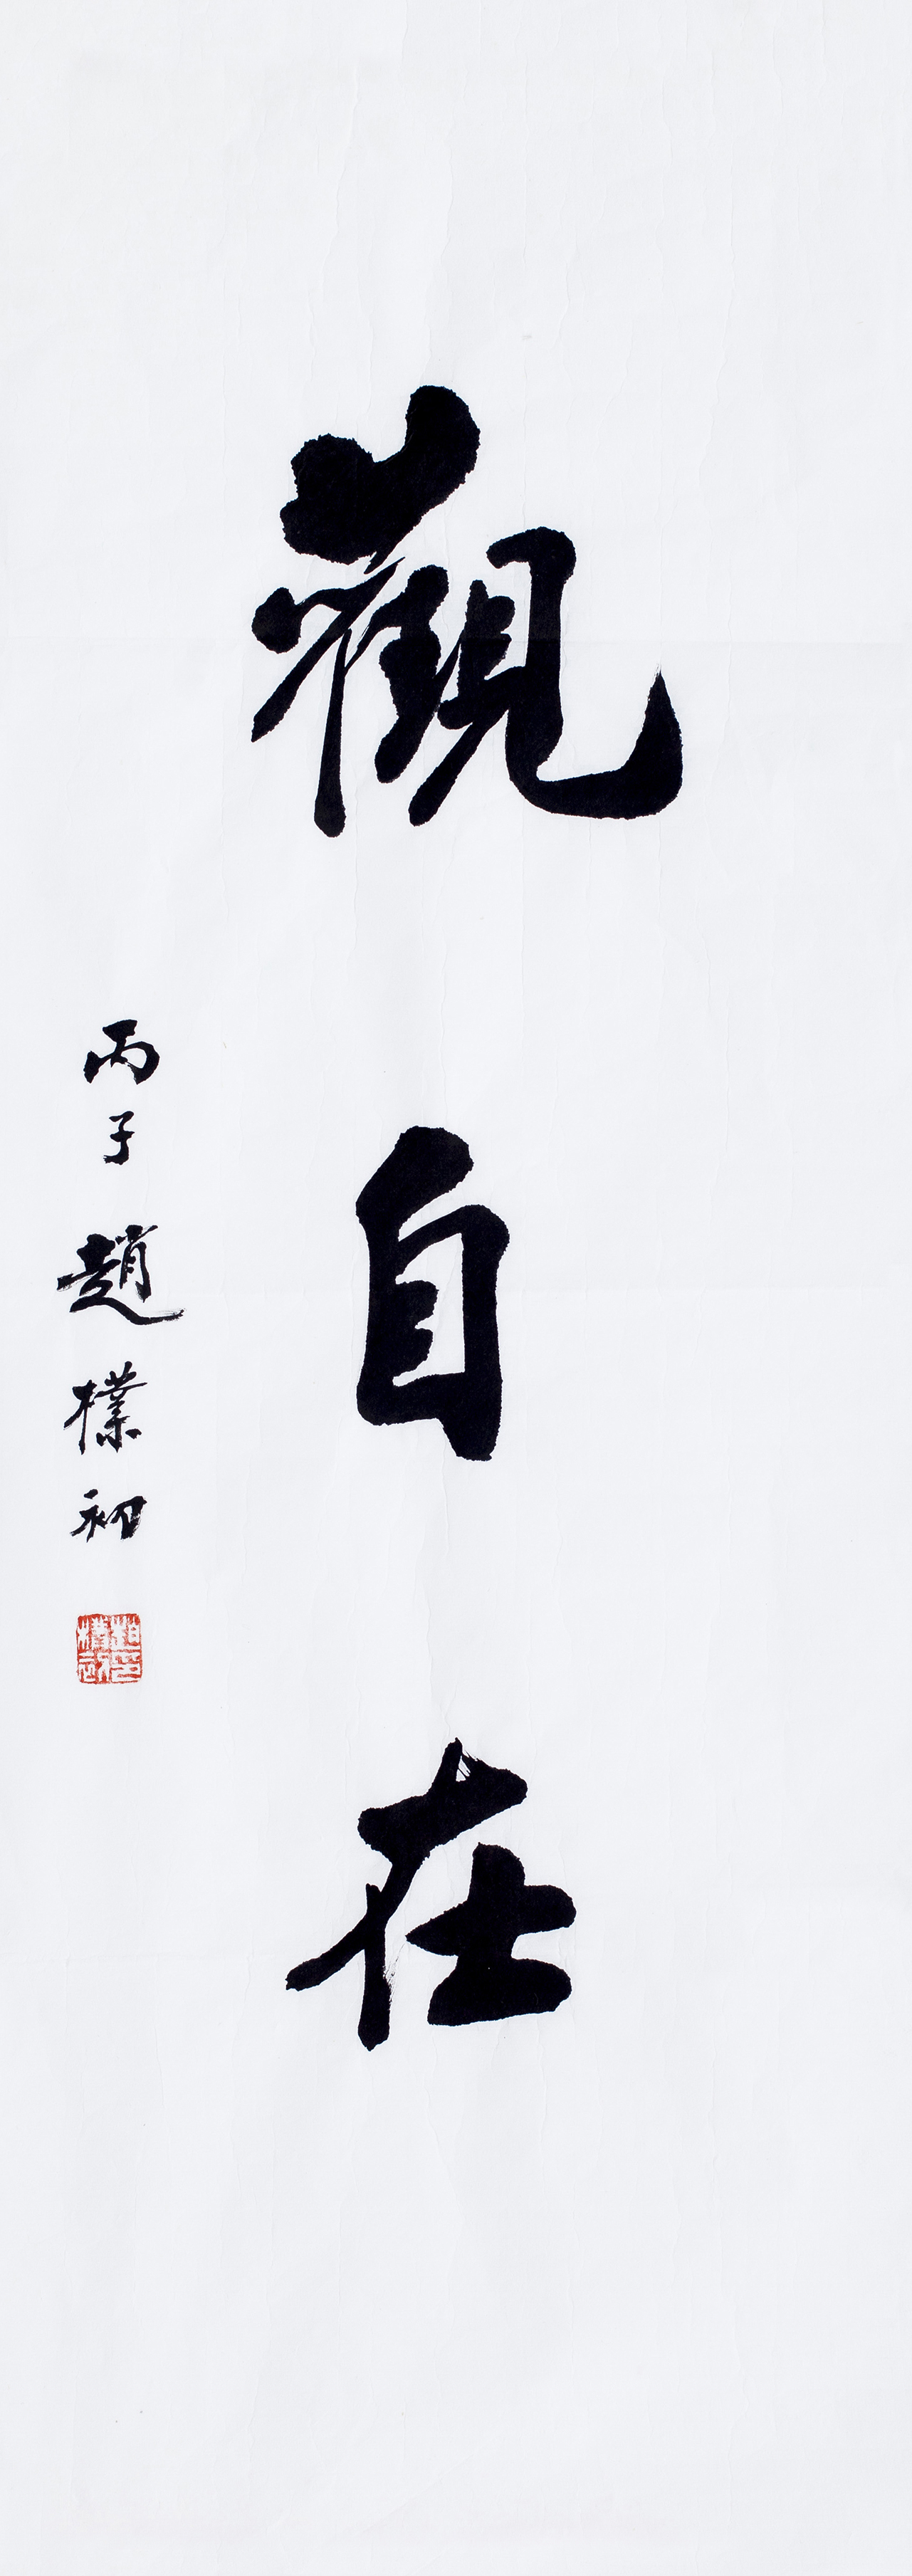 觀自在
丙子 趙樸初
趙樸初印